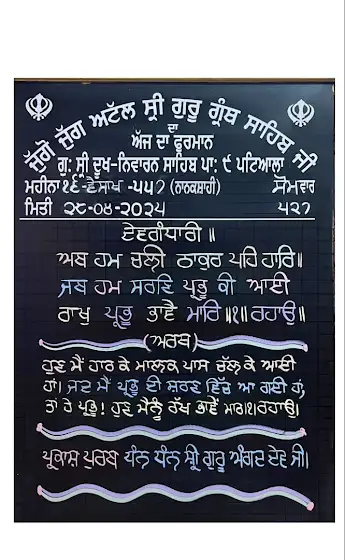 ਜੁੱਗੋ ਜੁੱਗ ਅਟੱਲ ਸ਼੍ਰੀ ਗੁਰੂ ਗ੍ਰੰਥ ਸਾਹਿਬ ਜੀ
ਦਾ
ਅੱਜ ਦਾ ਫੁਰਮਾਨ
ਗੁ: ਸ਼੍ਰੀ ਦੂਖ-ਨਿਵਾਰਨ ਸਾਹਿਬ ਪਾ: ੯ ਪਟਿਆਲਾ
ਮਹੀਨਾ ੧੬-ਵੈਸਾਖ-੫੫੭ (ਨਾਨਕਸ਼ਾਹੀ) ਸੋਮਵਾਰ
ਮਿਤੀ ੨੮-੦੪-੨੦੨੫ ੫੨੭
ਦੇਵਗੰਧਾਰੀ ॥
ਅਬ ਹਮ ਚਲੀ ਠਾਕੁਰ ਪਹਿ ਹਾਰਿ॥
ਜਬ ਹਮ ਸਰਣਿ ਪ੍ਰਭੂ ਕੀ ਆਈ
ਰਾਖੁ ਪ੍ਰਭੂ ਭਾਵੈ ਮਾਰਿ ॥੧॥ ਰਹਾਉ॥
(ਅਰਥ)
ਹੁਣ ਮੈਂ ਹਾਰ ਕੇ ਮਾਲਕ ਪਾਸ ਚੱਲ ਕੇ ਆਈ
ਹਾਂ। ਜਦ ਮੈਂ ਪ੍ਰਭੂ ਦੀ ਸ਼ਰਣ ਵਿੱਚ ਆ ਗਈ ਹਾਂ,
ਤਾਂ ਹੇ ਪ੍ਰਭੂ! ਹੁਣ ਮੈਨੂੰ ਰੱਖ ਭਾਵੇਂ ਮਾਰ।੧।ਰਹਾਉ।
ਪ੍ਰਕਾਸ਼ ਪੁਰਬ ਧੰਨ ਧੰਨ ਸ਼੍ਰੀ ਗੁਰੂ ਅੰਗਦ ਦੇਵ ਜੀ।